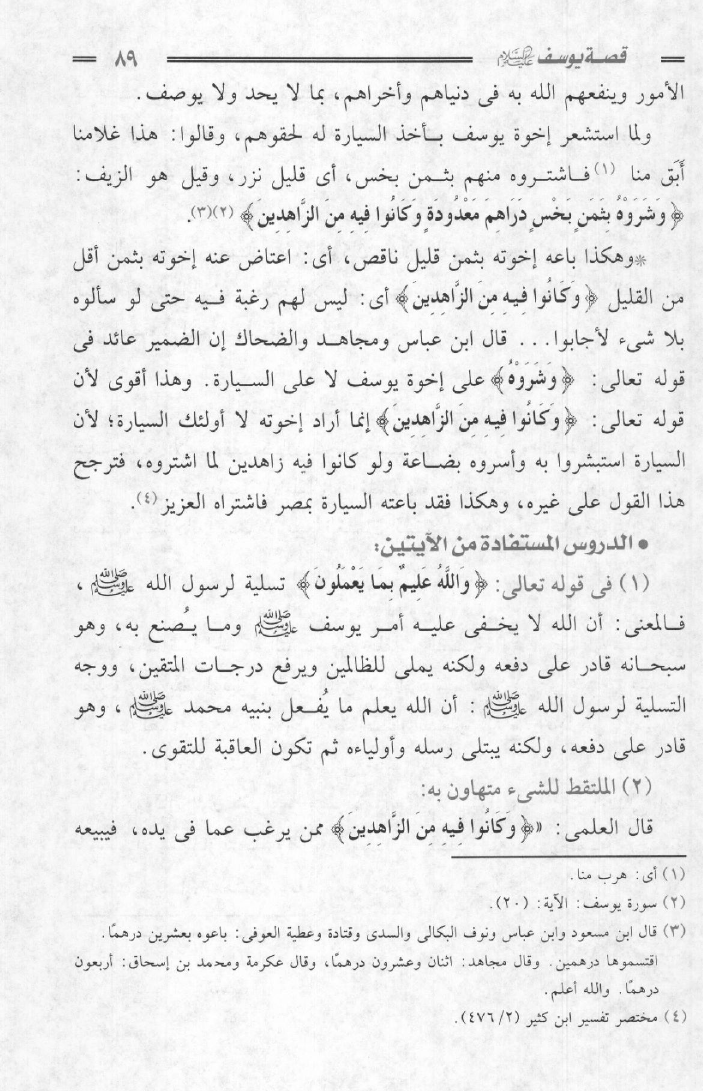 قصة يوسف عليه السلام ٨٩
الأمور وينفعهم الله به فى دنياهم وأخراهم، بما لا يحد ولا يوصف.
ولما استشعر إخوة يوسف بأخذ السيارة له لحقوهم، وقالوا: هذا غلامنا
أَبَق منا (١) فاشتروه منهم بثمن بخس، أى قليل نزر، وقيل هو الزيف:
﴿وَشَرَوْهُ بِثَمَنٍ بَخْسٍ دَرَاهِمَ مَعْدُودَةٍ وَكَانُوا فِيهِ مِنَ الزَّاهِدِينَ﴾ (٢)(٣).
*وهكذا باعه إخوته بثمن قليل ناقص، أى: اعتاض عنه إخوته بثمن أقل
من القليل ﴿وَكَانُوا فِيهِ مِنَ الزَّاهِدِينَ﴾ أى: ليس لهم رغبة فيه حتى لو سألوه
بلا شىء لأجابوا... قال ابن عباس ومجاهد والضحاك إن الضمير عائد فى
قوله تعالى: ﴿وَشَرَوْهُ﴾ على إخوة يوسف لا على السيارة. وهذا أقوى لأن
قوله تعالى: ﴿وَكَانُوا فِيهِ مِنَ الزَّاهِدِينَ﴾ إنما أراد إخوته لا أولئك السيارة؛ لأن
السيارة استبشروا به وأسروه بضاعة ولو كانوا فيه زاهدين لما اشتروه، فترجح
هذا القول على غيره، وهكذا فقد باعته السيارة بمصر فاشتراه العزيز (٤).
• الدروس المستفادة من الآيتين:
(١) فى قوله تعالى: ﴿وَاللَّهُ عَلِيمٌ بِمَا يَعْمَلُونَ﴾ تسلية لرسول الله ﷺ ،
فالمعنى: أن الله لا يخفى عليه أمر يوسف ﷺ وما يُصنع به، وهو
سبحانه قادر على دفعه ولكنه يملى للظالمين ويرفع درجات المتقين، ووجه
التسلية لرسول الله ﷺ : أن الله يعلم ما يُفعل بنبيه محمد ﷺ ، وهو
قادر على دفعه، ولكنه يبتلى رسله وأولياءه ثم تكون العاقبة للتقوى.
(٢) الملتقط للشىء متهاون به:
قال العلمى: «﴿وَكَانُوا فِيهِ مِنَ الزَّاهِدِينَ﴾ ممن يرغب عما فى يده، فيبيعه
(١) أى: هرب منا.
(٢) سورة يوسف: الآية: (٢٠).
(٣) قال ابن مسعود وابن عباس ونوف البكالى والسدى وقتادة وعطية العوفى: باعوه بعشرين درهمًا.
اقتسموها درهمين. وقال مجاهد: اثنان وعشرون درهمًا، وقال عكرمة ومحمد بن إسحاق: أربعون
درهمًا. والله أعلم.
(٤) مختصر تفسير ابن كثير (٢/ ٤٧٦).